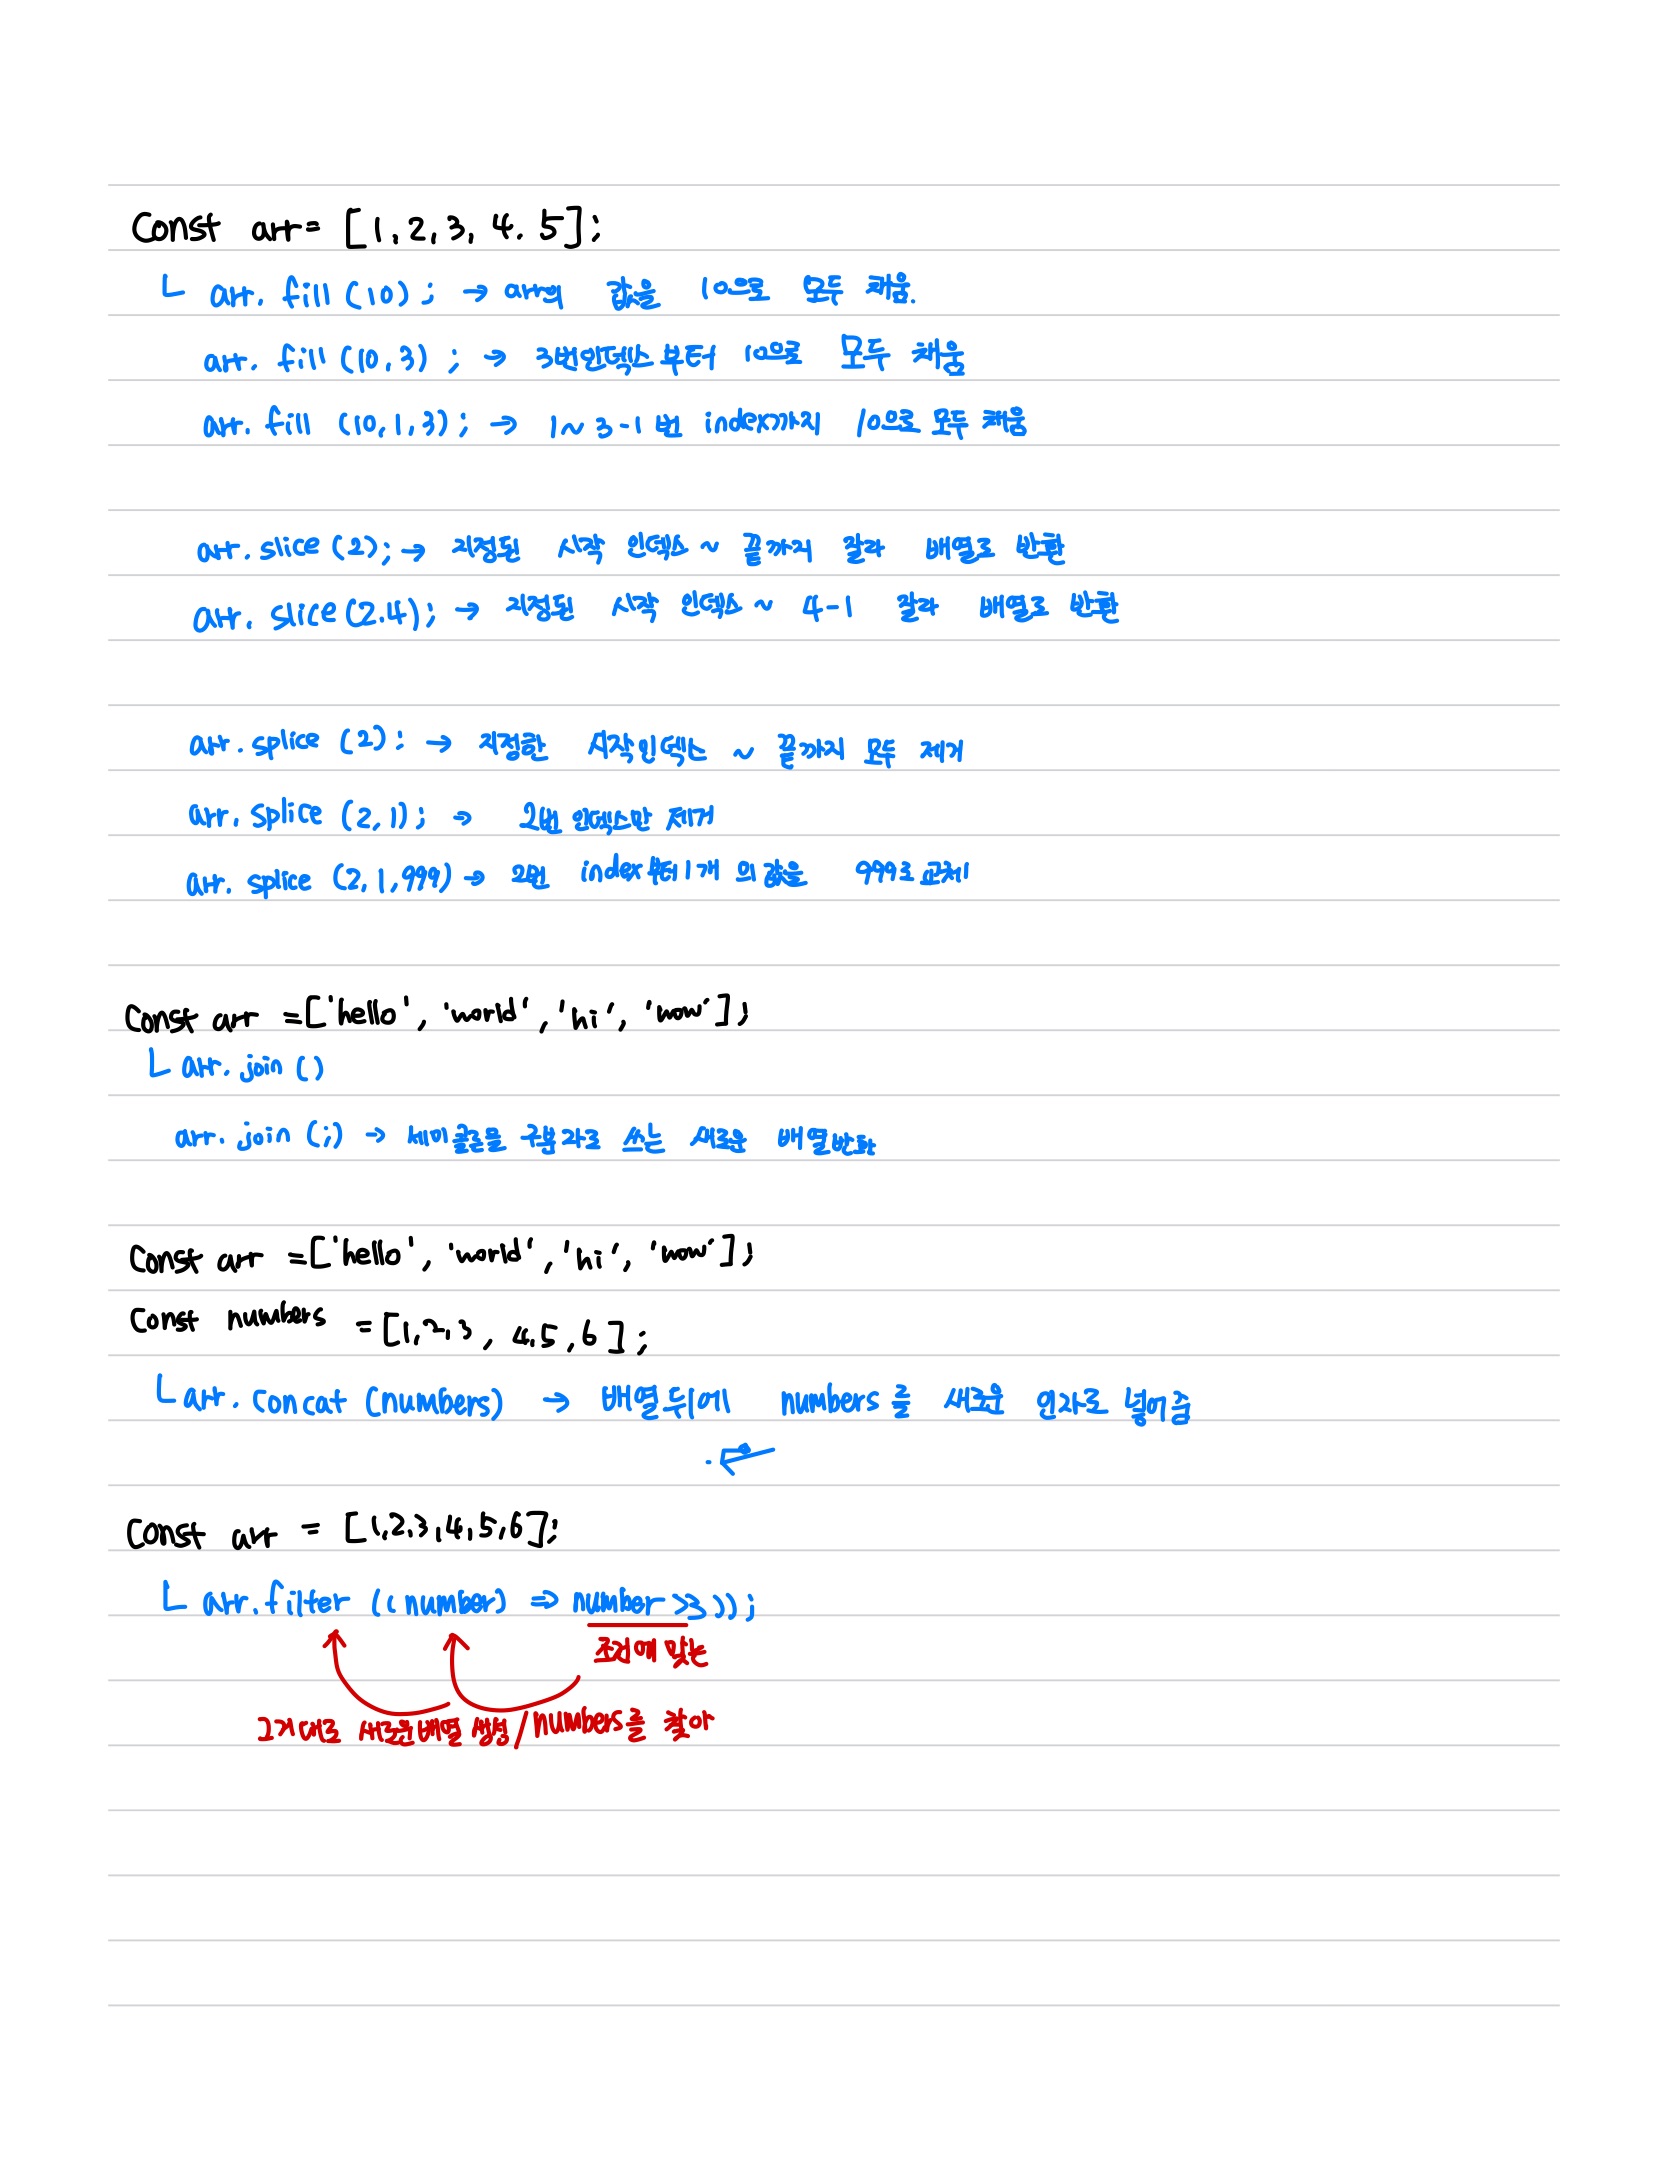 Const arr= [1,2,3, 4. 5];
ㄴ arr. fill (10) ; → arr의 값을 10으로 모두 채움.
arr. fill (10,3) ; → 3번인덱스부터 10으로 모두 채움
arr. fill (10,1,3) ; → 1~3-1번 index까지 10으로 모두 채움
arr. slice (2); → 지정된 시작 인덱스 ~ 끝까지 잘라 배열로 반환
arr. slice(2.4); → 지정된 시작 인덱스 ~ 4-1 잘라 배열로 반환
arr. splice (2); → 지정한 시작인덱스 ~ 끝까지 모두 제거
arr. splice (2,1); → 2번 인덱스만 제거
arr. splice (2,1,999) → 2번 index부터 1개의 값을 999로 교체
Const arr =['hello', 'world', 'hi', 'wow'];
ㄴ arr. join ()
arr. join (;) → 세미콜론을 구분자로 쓰는 새로운 배열반환
Const arr =['hello', 'world', 'hi', 'wow'];
Const numbers =[1,2,3, 4,5,6];
ㄴ arr. concat (numbers) → 배열뒤에 numbers를 새로운 인자로 넣어줌
Const arr = [1,2,3,4,5,6];
ㄴ arr.filter ((number) => number >3));
조건에 맞는
그거대로 새로운배열 생성/numbers를 찾아